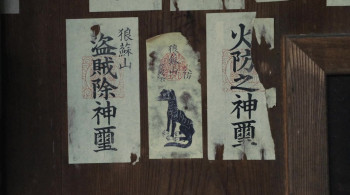 火防之神璽
狼蘇山
盗賊除神璽